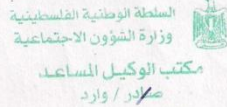 السلطة الوطنية الفلسطينية
وزارة الشؤون الاجتماعية
مكتب الوكيل المساعد
صادر / وارد